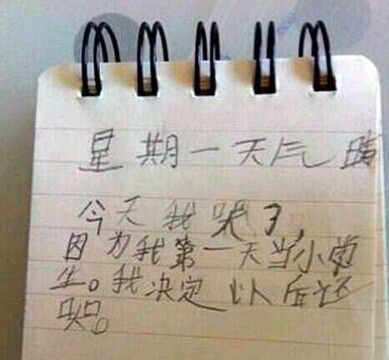 星期一天气晴
今天我哭了,
因为我第一天当小学
生。我决定以后还
哭。